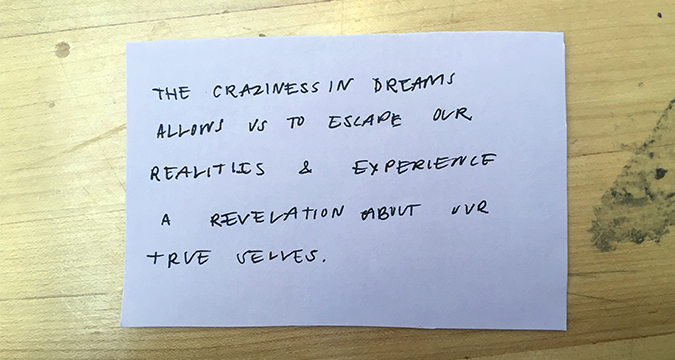 THE CRAZINESS IN DREAMS
ALLOWS US TO ESCAPE OUR
REALITIES & EXPERIENCE
A REVELATION ABOUT OUR
TRUE SELVES.